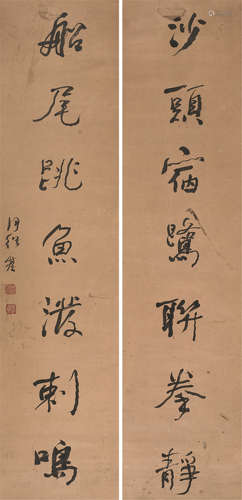 沙頭宿鷺聯拳靜
船尾跳魚潑剌鳴
何紹基